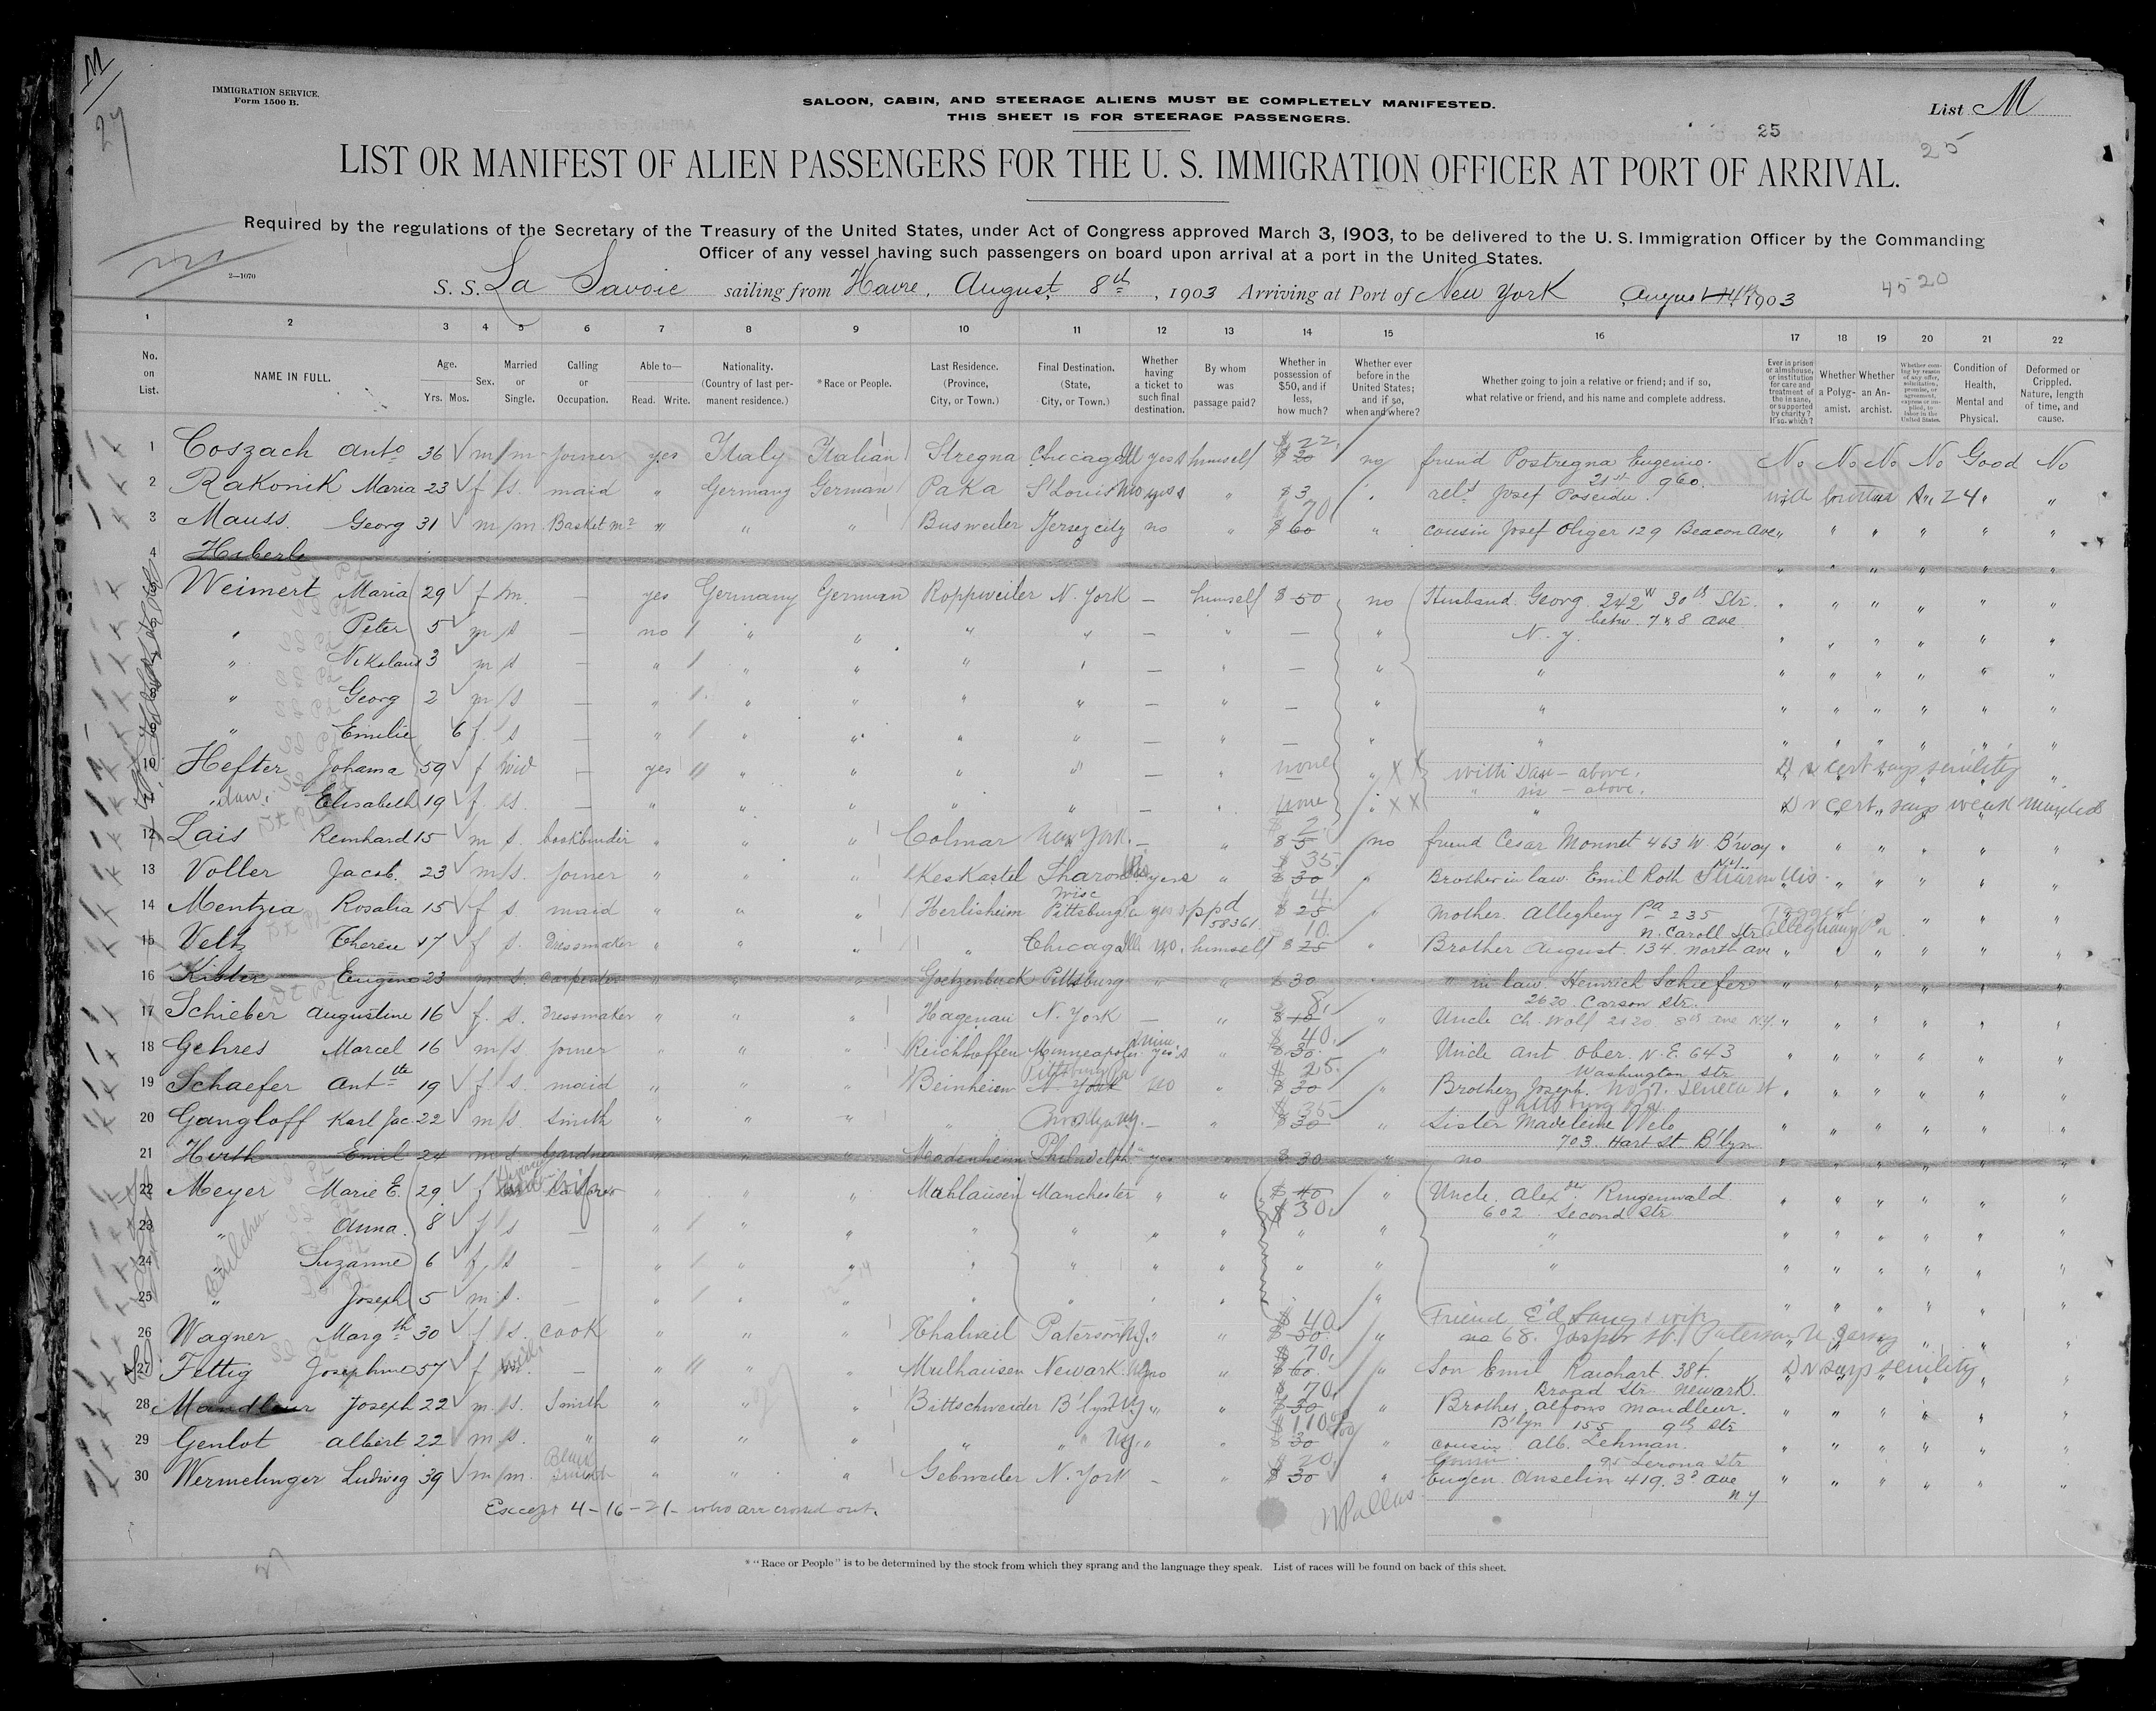 M
27
IMMIGRATION SERVICE.
Form 1500 B.
SALOON, CABIN, AND STEERAGE ALIENS MUST BE COMPLETELY MANIFESTED.
THIS SHEET IS FOR STEERAGE PASSENGERS.
List M
25
25
LIST OR MANIFEST OF ALIEN PASSENGERS FOR THE U. S. IMMIGRATION OFFICER AT PORT OF ARRIVAL.
Required by the regulations of the Secretary of the Treasury of the United States, under Act of Congress approved March 3, 1903, to be delivered to the U. S. Immigration Officer by the Commanding
Officer of any vessel having such passengers on board upon arrival at a port in the United States.
2—1070
S. S. La Savoie sailing from Havre, August 8th, 1903 Arriving at Port of New York August 14th 1903
45-20
1 2 3 4 5 6 7 8 9 10 11 12 13 14 15 16 17 18 19 20 21 22
No. on List.
NAME IN FULL.
Age.
Yrs. Mos.
Sex.
Married or Single.
Calling or Occupation.
Able to—
Read. Write.
Nationality. (Country of last permanent residence.)
*Race or People.
Last Residence. (Province, City, or Town.)
Final Destination. (State, City, or Town.)
Whether having a ticket to such final destination.
By whom was passage paid?
Whether in possession of $50, and if less, how much?
Whether ever before in the United States; and if so, when and where?
Whether going to join a relative or friend; and if so, what relative or friend, and his name and complete address.
Ever in prison or almshouse, or institution for care and treatment of the insane, or supported by charity? If so, which?
Whether a Polygamist.
Whether an Anarchist.
Whether coming by reason of any offer, solicitation, promise, or agreement, express or implied, to labor in the United States.
Condition of Health, Mental and Physical.
Deformed or Crippled. Nature, length of time, and cause.
1 Coszach Anto 36 m m joiner yes Italy Italian Stregna Chicago Ill yes himself $ 22 $ 30 no friend Postregna Eugenio. No No No No Good No
21st 960
2 Rakonik Maria 23 f s. maid " Germany German Paka S Louis Mo yes " $ 3 " Josef
3 Mauss Georg 31 m m. " " " Busweiler Jersey city no " 70 $ 60 " cousin Josef Oliger 129 Beacon Ave " " " " " "
4 Heberle
Weimert Maria 29 f m. — yes Germany German Roppweiler N. York — himself $ 50 no Husband Georg. 242 W 30th Str.
betw. 7 & 8 ave
" Peter 5 m s — no " " " " — " — " N. Y.
" Nikolaus 3 m s — " " " " " — " — " "
" Georg 2 m s — " " " " " — " — " "
" Emilie 6 f. s — " " " " " — " — " "
10 Hefter Johanna 59 f wid — yes " " " " — " none " X X with Dau — above. cert says senility
Elisabeth 19 f. s. — " " " " " — " none " X X " — above. cert. says weak minded
12 Lais Reinhard 15 m s. bookbinder " " " Colmar New York. — " 2 $ 5 no friend Cesar Monnet 463 W. B'way
13 Voller Jacob. 23 m s. joiner " " " Keskastel Sharon yes " 35. $ 30 " Brother in law. Emil Roth Sharon Wis
Wisc
14 Mentzia Rosalia 15 f s maid " " " Herlisheim Pittsburg Pa yes ppd 58361 4. $ 25 " Mother. Allegheny Pa 235
n. Caroll Str Allegheny Pa
15 Veltz Therese 17 f. s. dressmaker " " " " Chicago Ill no. himself 10. $ 25 " Brother August. 134. North ave
16 Kibler Eugene 23 m s. carpenter " " " Goetzenbuck Pittsburg " " $ 30 " " in law. Heinrich Schiefer
2620. Carson Str.
17 Schieber Augustine 16 f. s. dressmaker " " " Hagenau N. York — " 8. $ 10 " Uncle Ch. Wolf 2120 8th ave N.Y.
18 Gehres Marcel 16 m s joiner " " " Reichhoffen Minneapolis Minn yes " 40. $ 30. " Uncle Ant. Ober. N. E. 643
Washington Str
19 Schaefer Anttte 19 f s. maid " " " Beinheim Pittsburg Pa N. York no " $ 25. $ 30 " Brother Joseph. Seneca St
Pittsburg Pa.
20 Gangloff Karl Jac. 22 m s. smith " " " " Brooklyn NY. — " $ 35 $ 30 " Sister Madeleine Velo
703. Hart St. B'lyn
21 Hirth Emil 24 m s Gardner " " " Philadelph. yes " $ 30 " no
22 Meyer Marie E. 29. f wife " " " Mahlausen Manchester " " $ 40 $ 30. " Uncle. Alexdr. Ringenwald
602 Second Str.
23 " Anna. 8 f s — " " " " " " " " " "
24 " Suzanne 6 f. s — " " " " " " " " "
25 " Joseph 5 m s. — " " " " " " " " "
Children
26 Wagner Margth 30 f. s. cook " " " Thalweil Paterson N.J. " " $ 40 $ 30. " Friend Ed Lang & wife
no 68. Jasper St. Paterson N. Jersey
27 Fettig Josephine 57 f wid. — " " " Mulhausen Newark. NJ no " 70. $ 60. " Son Emil 38 f. says senility
Broad Str. Newark.
28 Mandleur Joseph 22 m. s. Smith " " " Bittschweider B'lyn NY " " $ 70. $ 30 " Brother. Alfons Mandleur.
B'lyn 155 9th Str
29 Genlot Albert 22 m s. " " " " " " NY. " " $ 110 $ 30 " cousin Alb. Lehman.
95
30 Wermelinger Ludwig 39 m m. Black smith " " " Gebweiler N. York — " 20. $ 30 " Eugen. Anselin 419. 3d ave
N Y
Except 4 – 16 – 21 – who are crossed out.
27
* "Race or People" is to be determined by the stock from which they sprang and the language they speak. List of races will be found on back of this sheet.